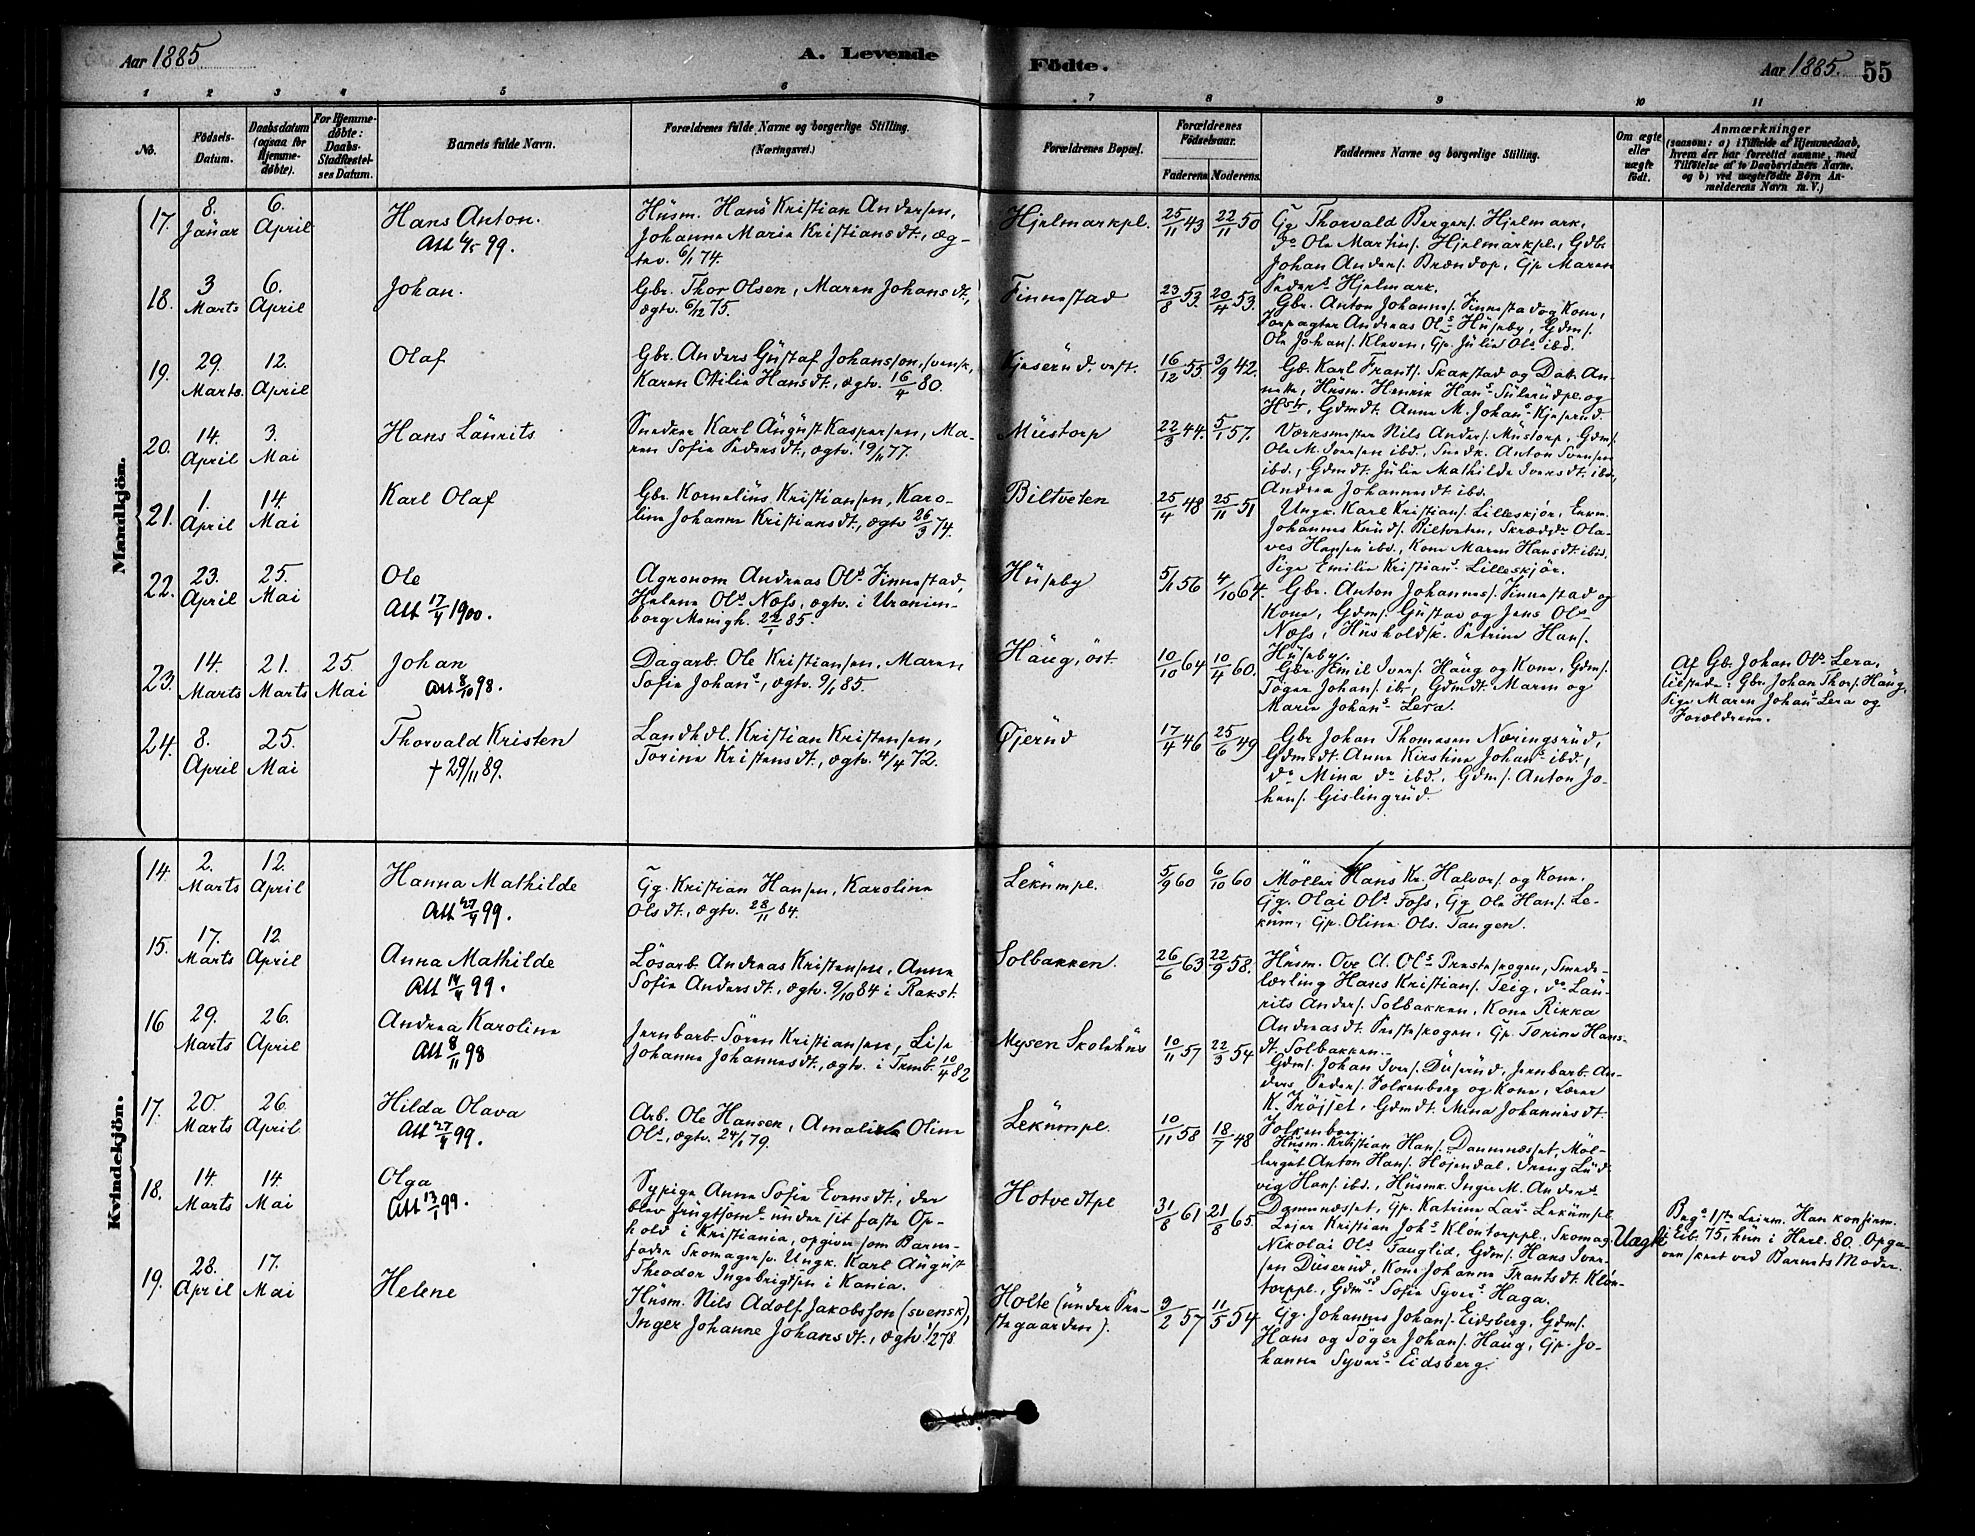 Aar 1885
A. Levende Födte.
Aar 1885. 55
1 2 3 4 5 6 7 8 9 10 11
No.
Födsels-Datum.
Daabsdatum (ogsaa for Hjemme-døbte).
For Hjemme-døbte: Daabs-Stadfæstel-ses Datum.
Barnets fulde Navn.
Forældrenes fulde Navne og borgerlige Stilling. (Næringsvei.)
Forældrenes Bopæl.
Forældrenes Födselsaar.
Faderens. Moderens.
Faddernes Navne og borgerlige Stilling.
Om ægte eller uægte født.
Anmærkninger
(saasom: a) i Tilfælde af Hjemmedaab, hvem der har forrettet samme, med Tilföielse af to Daabsvidners Navne. og b) ved uægtefödte Börn An-melderens Navn m. V.)
Mandkjön.
17. 8. Januar 6. April Hans Anton. Att 99.
Husm. Hans Kristian Andersen,
Johanne Marie Kristiansdt., æg-
tev. 6/1 74.
Hjelmarkpl. 25/11 43 22/11 50
Gg Thorvald Bergers. Hjelmark,
do Ole Martins. Hjelmarkpl., Gdbr
Johan Anders. Brændop, Gp Maren
Peders Hjelmark.
18. 3 Marts 6. April Johan.
Gbr. Thor Olsen, Maren Johansdt.,
ægtv. 6/12 75.
Finnestad 23/8 53. 20/4 53.
Gbr. Anton Johannes. Finnestad og Kone,
Forpagter Andreas Ols Huseby, Gdms.
Ole Johans. Kleven, Gp. Julie Ols ibd.
19. 29. Marts. 12. April Olaf
Gbr. Anders Gustaf Johansson, svensk,
Karen Otilie Hansdt., ægtv. 16/4 80.
Kjeserud vest. 16/12 55 3/9 42.
Gb. Karl Frants. Skakstad og Dab. An-
nette, Husm. Henrik Hans Sulerudpl. og
Hstr, Gdmdt. Anne M. Johans Kjeserud
20. 14. April 3. Mai Hans Laurits
Snedker Karl August Kaspersen, Ma-
ren Sofie Pedersdt., ægtv. 19/11 77.
Mustorp 22/3 44. 5/1 57.
Værksmester Nils Anders. Mustorp, Gdms.
Ole M. Iversen ibd., Snedk. Anton Svensen
ibd., Gdmdt. Julie Mathilde Iversdt. ibd.,
Andrea Johannesdt ibd.
21. 1. April 14. Mai Karl Olaf
Gbr. Kornelius Kristiansen, Karo-
line Johanne Kristiansdt., ægtv 26/3 74.
Biltveten 25/4 48 25/11 51
Ungk. Karl Kristians. Lilleskjør, Enkm.
Johannes Knuds. Biltveten, Skrædder Ola-
ves Hansen ibd., Kone Maren Hansdt. ibd.
Pige Emilie Kristians Lilleskjør.
22. 23. April 25. Mai Ole Att 17/4 1900.
Agronom Andreas Ols Finnestad,
Helene Ols Næss, ægtv. i Uranien-
borg Menigh. 22/1 85.
Huseby 5/1 56 4/10 64.
Gbr. Anton Johannes. Finnestad og
Kone, Gdms. Gustav og Jens Ols
Næss, Husholdsk. Petrine Hans.
Huseby.
23. 14. Marts 21. Marts 25 Mai Johan Att 8/10 98.
Dagarb. Ole Kristiansen, Maren
Sofie Johans, ægtv. 9/1 85.
Haug, öst. 10/10 64 10/4 60.
Gbr. Emil Ivers. Haug og Kone, Gdms.
Töger Johans. ib., Gdmdt. Maren og
Marie Johans Lera.
Af Gb. Johan Ols Lera,
tilstede: Gbr. Johan Thors. Haug,
Pige Maren Johans Lera og
Forældrene.
24. 8. April 25. Mai Thorvald Kristen † 29/11 89.
Landhdl. Kristian Kristensen,
Torine Kristensdt., ægtv. 4/4 72.
Øjerud 17/4 46 25/6 49
Gbr Johan Thomasen Næringsrud,
Gdmdt. Anne Kirstine Johans ibd.,
do Mina do ibd., Gdms. Anton Jo-
hans. Gislingrud.
Kvindekjön.
14. 2. Marts 12. April Hanna Mathilde Att 27/4 99.
Gg. Kristian Hansen, Karoline
Olsdt., ægtv. 28/11 84.
Lekumpl. 5/9 60 6/10 60
Möller Hans Kr. Halvors. og Kone,
Gg. Olai Ols Foss, Gg Ole Hans. Le-
kum, Gp. Oline Ols. Tangen.
15. 17. Marts 12. April Anna Mathilde Att 14/4 99.
Lösarb. Andreas Kristensen, Anne
Sofie Andersdt., ægtv. 9/10 84 i Rakst.
Solbakken. 26/6 63 22/9 58.
Husm. Ove A. Ols Presteskogen, Smede-
lærling Hans Kristians. Teig, do Lau-
rits Anders. Solbakken, Kone Rikka
Andreasdt. Presteskogen, Gp. Torine Hans-
dt. Solbakken.
16 29. Marts 26. April Andrea Karoline Att 8/11 98
Jernbarb. Sören Kristiansen, Lise
Johanne Johannesdt., ægtv. i Tromb. 10/4 82
Mysen Skolehus 10/11 57 22/3 54
Gdms. Johan Ivers. Duserud, Jernbarb. An-
ders Peders. Folkenborg og Kone, Lærer
K. Fröisset, Gdmdt. Mina Johannesdt.
Folkenborg.
17. 20. Marts 26. April Hilda Olava Att 27/4 99.
Arb. Ole Hansen, Amalie Oline
Ols, ægtv. 24/1 79.
Lekumpl. 10/11 58 18/7 48
Husm. Kristian Hans. Damnæsset, Möl-
lergut Anton Hans. Höjendal, Dreng Lud-
vig Hans. ibd., Husmk. Inger M. Anders
Damnæsset, Gp. Katrine Lars Lekumpl.
18. 14. Marts 14. Mai Olga Att 13/1 99.
Sypige Anne Sofie Evensdt., der
blev frugtsoml. under sit faste Op-
hold i Kristiania, opgiver som Barne-
fader Skomagersv. Ungk. Karl August
Theodor Ingebrigtsen i Kania.
Hotvedtpl 31/8 61 21/8 65.
Lejer Kristian Johs Klöntorppl., Skomag.
Nikolai Ols Tauglid, Gdms. Hans Iver-
sen Duserud, Kone Johanne Frantsdt. Klön-
torppl., Gdmsd Sofie Syvers Haga.
Uægte
Begs 1ste Leierm. Han konfirm.
i Eib. 75, hun i Herl. 80. Opga-
ven skeet ved Barnets Moder.
19. 28. April 17. Mai Helene
Husm. Nils Adolf Jakobsson (svensk),
Inger Johanne Johansdt., ægtv 1/2 78
Holte (under Pre-
stegaarden). 9/2 57 11/5 54.
Gg. Johannes Johans. Eidsberg, Gdms.
Hans og Töger Johans. Haug, Gp. Jo-
hanne Syvers Eidsberg.